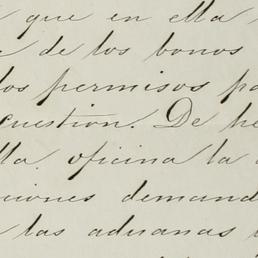 que en ella
de los bonos
los permisos pa
cuestion. De he
lla oficina la
ciones demand
las aduanas